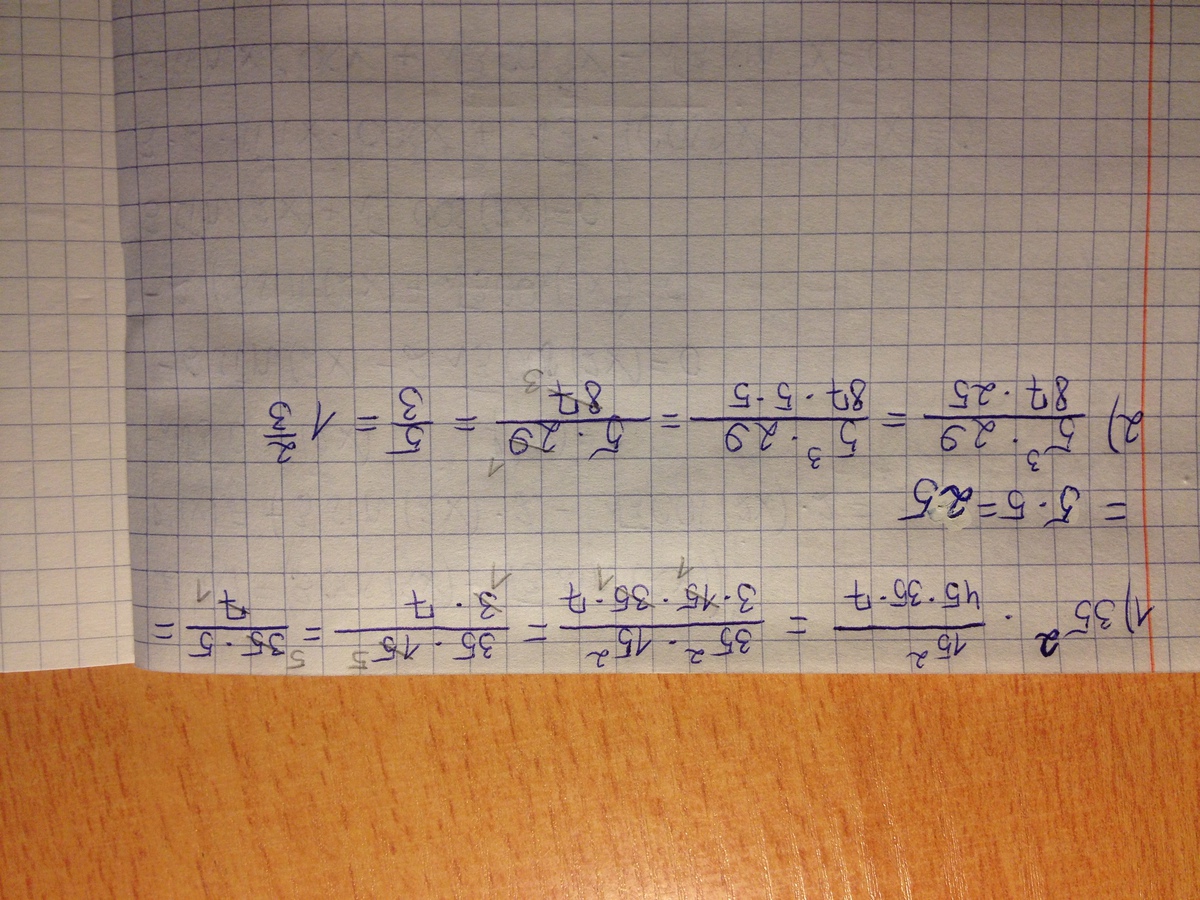 1) 35² · 15²/(45·35·7) = (35² · 15²)/(3·15·35·7) = (35 · 15)/(3 · 7) = (35 · 5)/7 =
= 5 · 5 = 25
2) (5³ · 29)/(87 · 25) = (5³ · 29)/(87 · 5 · 5) = (5 · 29)/87 = 5/3 = 1 2/3